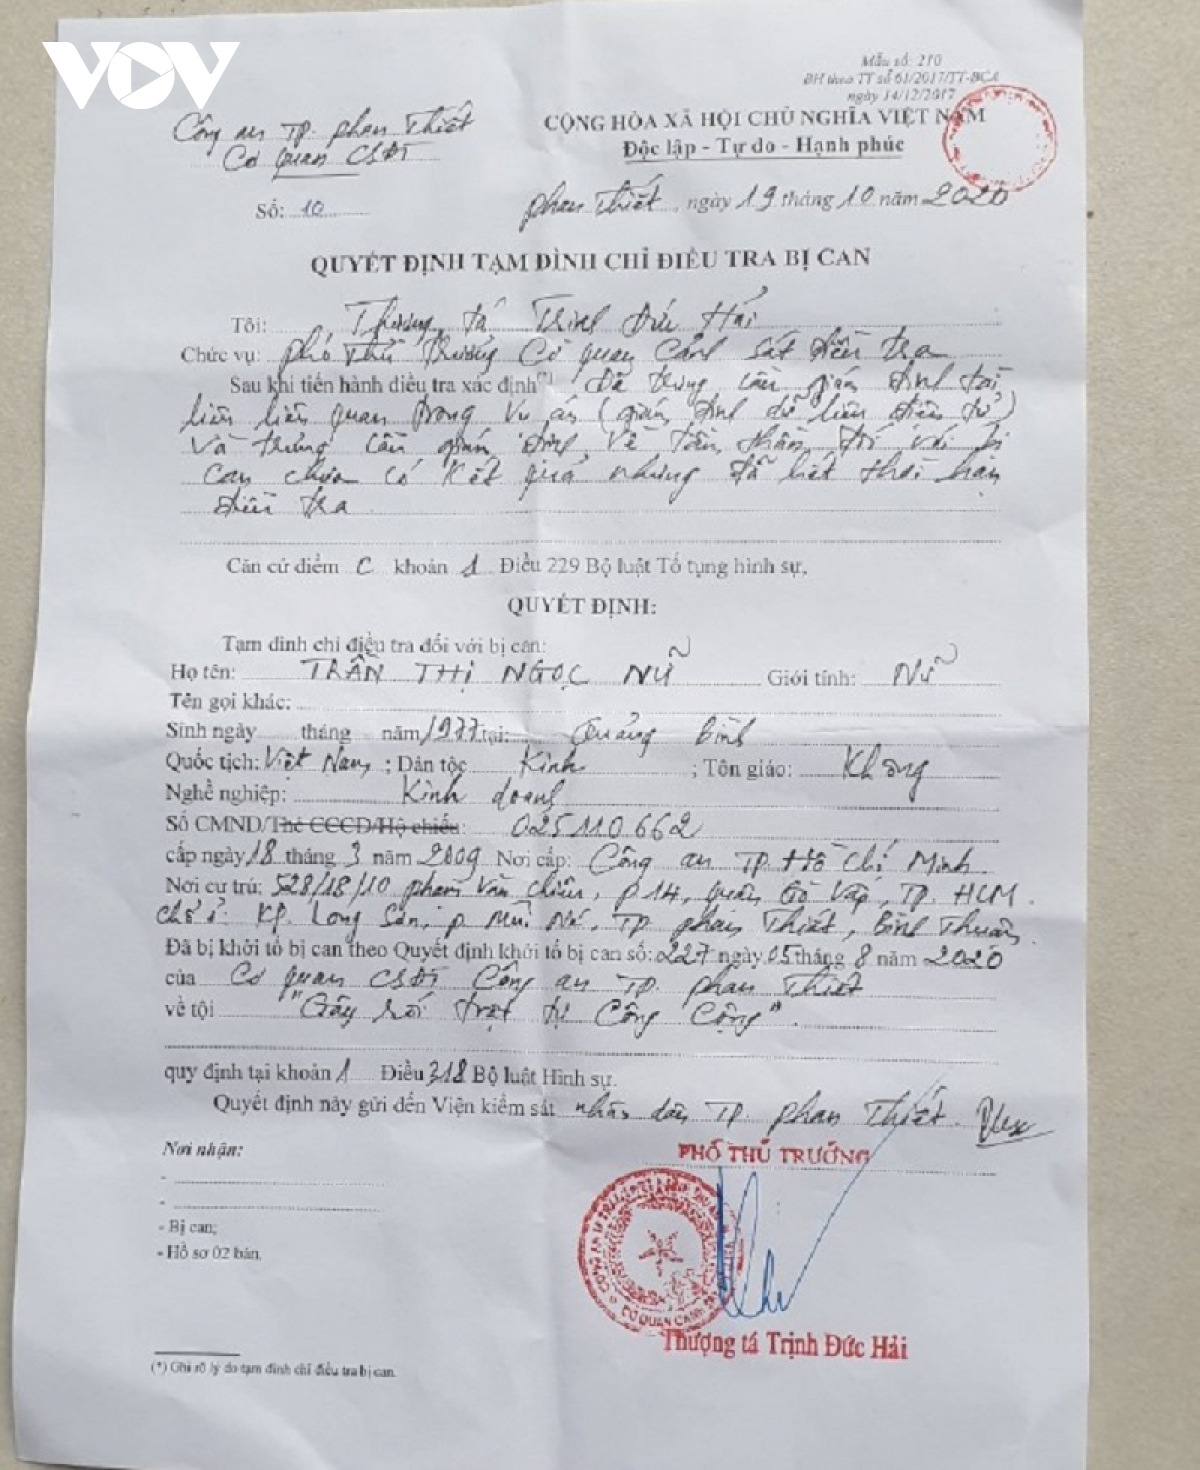 VOV
Mẫu số: 210
BH theo TT số 61/2017/TT-BCA
ngày 14/12/2017
Công an TP. Phan Thiết
Cơ quan CSĐT
CỘNG HÒA XÃ HỘI CHỦ NGHĨA VIỆT NAM
Độc lập - Tự do - Hạnh phúc
Số: 10
Phan Thiết, ngày 19 tháng 10 năm 2020
QUYẾT ĐỊNH TẠM ĐÌNH CHỈ ĐIỀU TRA BỊ CAN
Tôi: Thượng tá Trịnh Đức Hải
Chức vụ: Phó Thủ trưởng Cơ quan Cảnh sát điều tra
Sau khi tiến hành điều tra xác định(*) Đã trưng cầu giám định tài
liệu liên quan trong vụ án (giám định dữ liệu điện tử)
và trưng cầu giám định về tâm thần đối với bị
can chưa có kết quả nhưng đã hết thời hạn
điều tra
Căn cứ điểm c khoản 1 Điều 229 Bộ luật Tố tụng hình sự,
QUYẾT ĐỊNH:
Tạm đình chỉ điều tra đối với bị can:
Họ tên: TRẦN THỊ NGỌC NỮ Giới tính: Nữ
Tên gọi khác:
Sinh ngày tháng năm 1977 tại: Quảng Bình
Quốc tịch: Việt Nam; Dân tộc Kinh; Tôn giáo: Không
Nghề nghiệp: Kinh doanh
Số CMND/Thẻ CCCD/Hộ chiếu: 025110662
cấp ngày 18 tháng 3 năm 2009 Nơi cấp: Công an TP. Hồ Chí Minh
Nơi cư trú: 528/18/10 Phạm Văn Chiêu, P14, Quận Gò Vấp, TP. HCM.
Chỗ ở: KP. Long Sơn, P. Mũi Né, TP Phan Thiết, Bình Thuận
Đã bị khởi tố bị can theo Quyết định khởi tố bị can số: 227 ngày 05 tháng 8 năm 2020
của Cơ quan CSĐT Công an TP. Phan Thiết
về tội "Gây rối trật tự công cộng".
quy định tại khoản 1 Điều 318 Bộ luật Hình sự.
Quyết định này gửi đến Viện kiểm sát nhân dân TP. Phan Thiết.
Nơi nhận:
-
-
- Bị can;
- Hồ sơ 02 bản.
PHÓ THỦ TRƯỞNG
CƠ QUAN CẢNH
Thượng tá Trịnh Đức Hải
(*) Ghi rõ lý do tạm đình chỉ điều tra bị can.